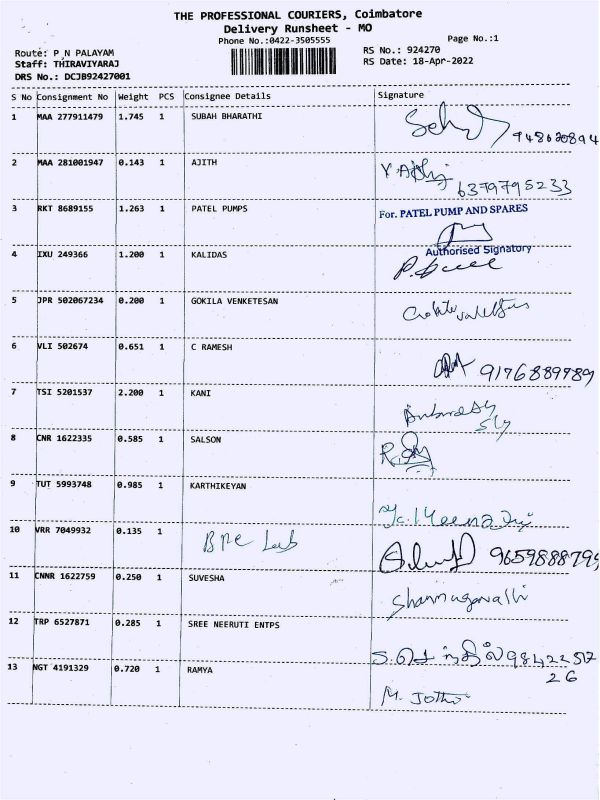 THE PROFESSIONAL COURIERS, Coimbatore
Delivery Runsheet - MO
Phone No.:0422-3505555 Page No.:1
Route: P N PALAYAM RS No.: 924270
Staff: THIRAVIYARAJ RS Date: 18-Apr-2022
DRS No.: DCJB92427001
S No Consignment No Weight PCS Consignee Details Signature
1 MAA 277911479 1.745 1 SUBAH BHARATHI
2 MAA 281001947 0.143 1 AJITH
6379795233
3 RKT 8689155 1.263 1 PATEL PUMPS For. PATEL PUMP AND SPARES
Authorised Signatory
4 IXU 249366 1.200 1 KALIDAS
5 JPR 502067234 0.200 1 GOKILA VENKETESAN
6 VLI 502674 0.651 1 C RAMESH
9176889789
7 TSI 5201537 2.200 1 KANI
8 CNR 1622335 0.585 1 SALSON
9 TUT 5993748 0.985 1 KARTHIKEYAN
10 VRR 7049932 0.135 1 BPC Lab
11 CNNR 1622759 0.250 1 SUVESHA
Shanmugavalli
12 TRP 6527871 0.285 1 SREE NEERUTI ENTPS
26
13 NGT 4191329 0.720 1 RAMYA